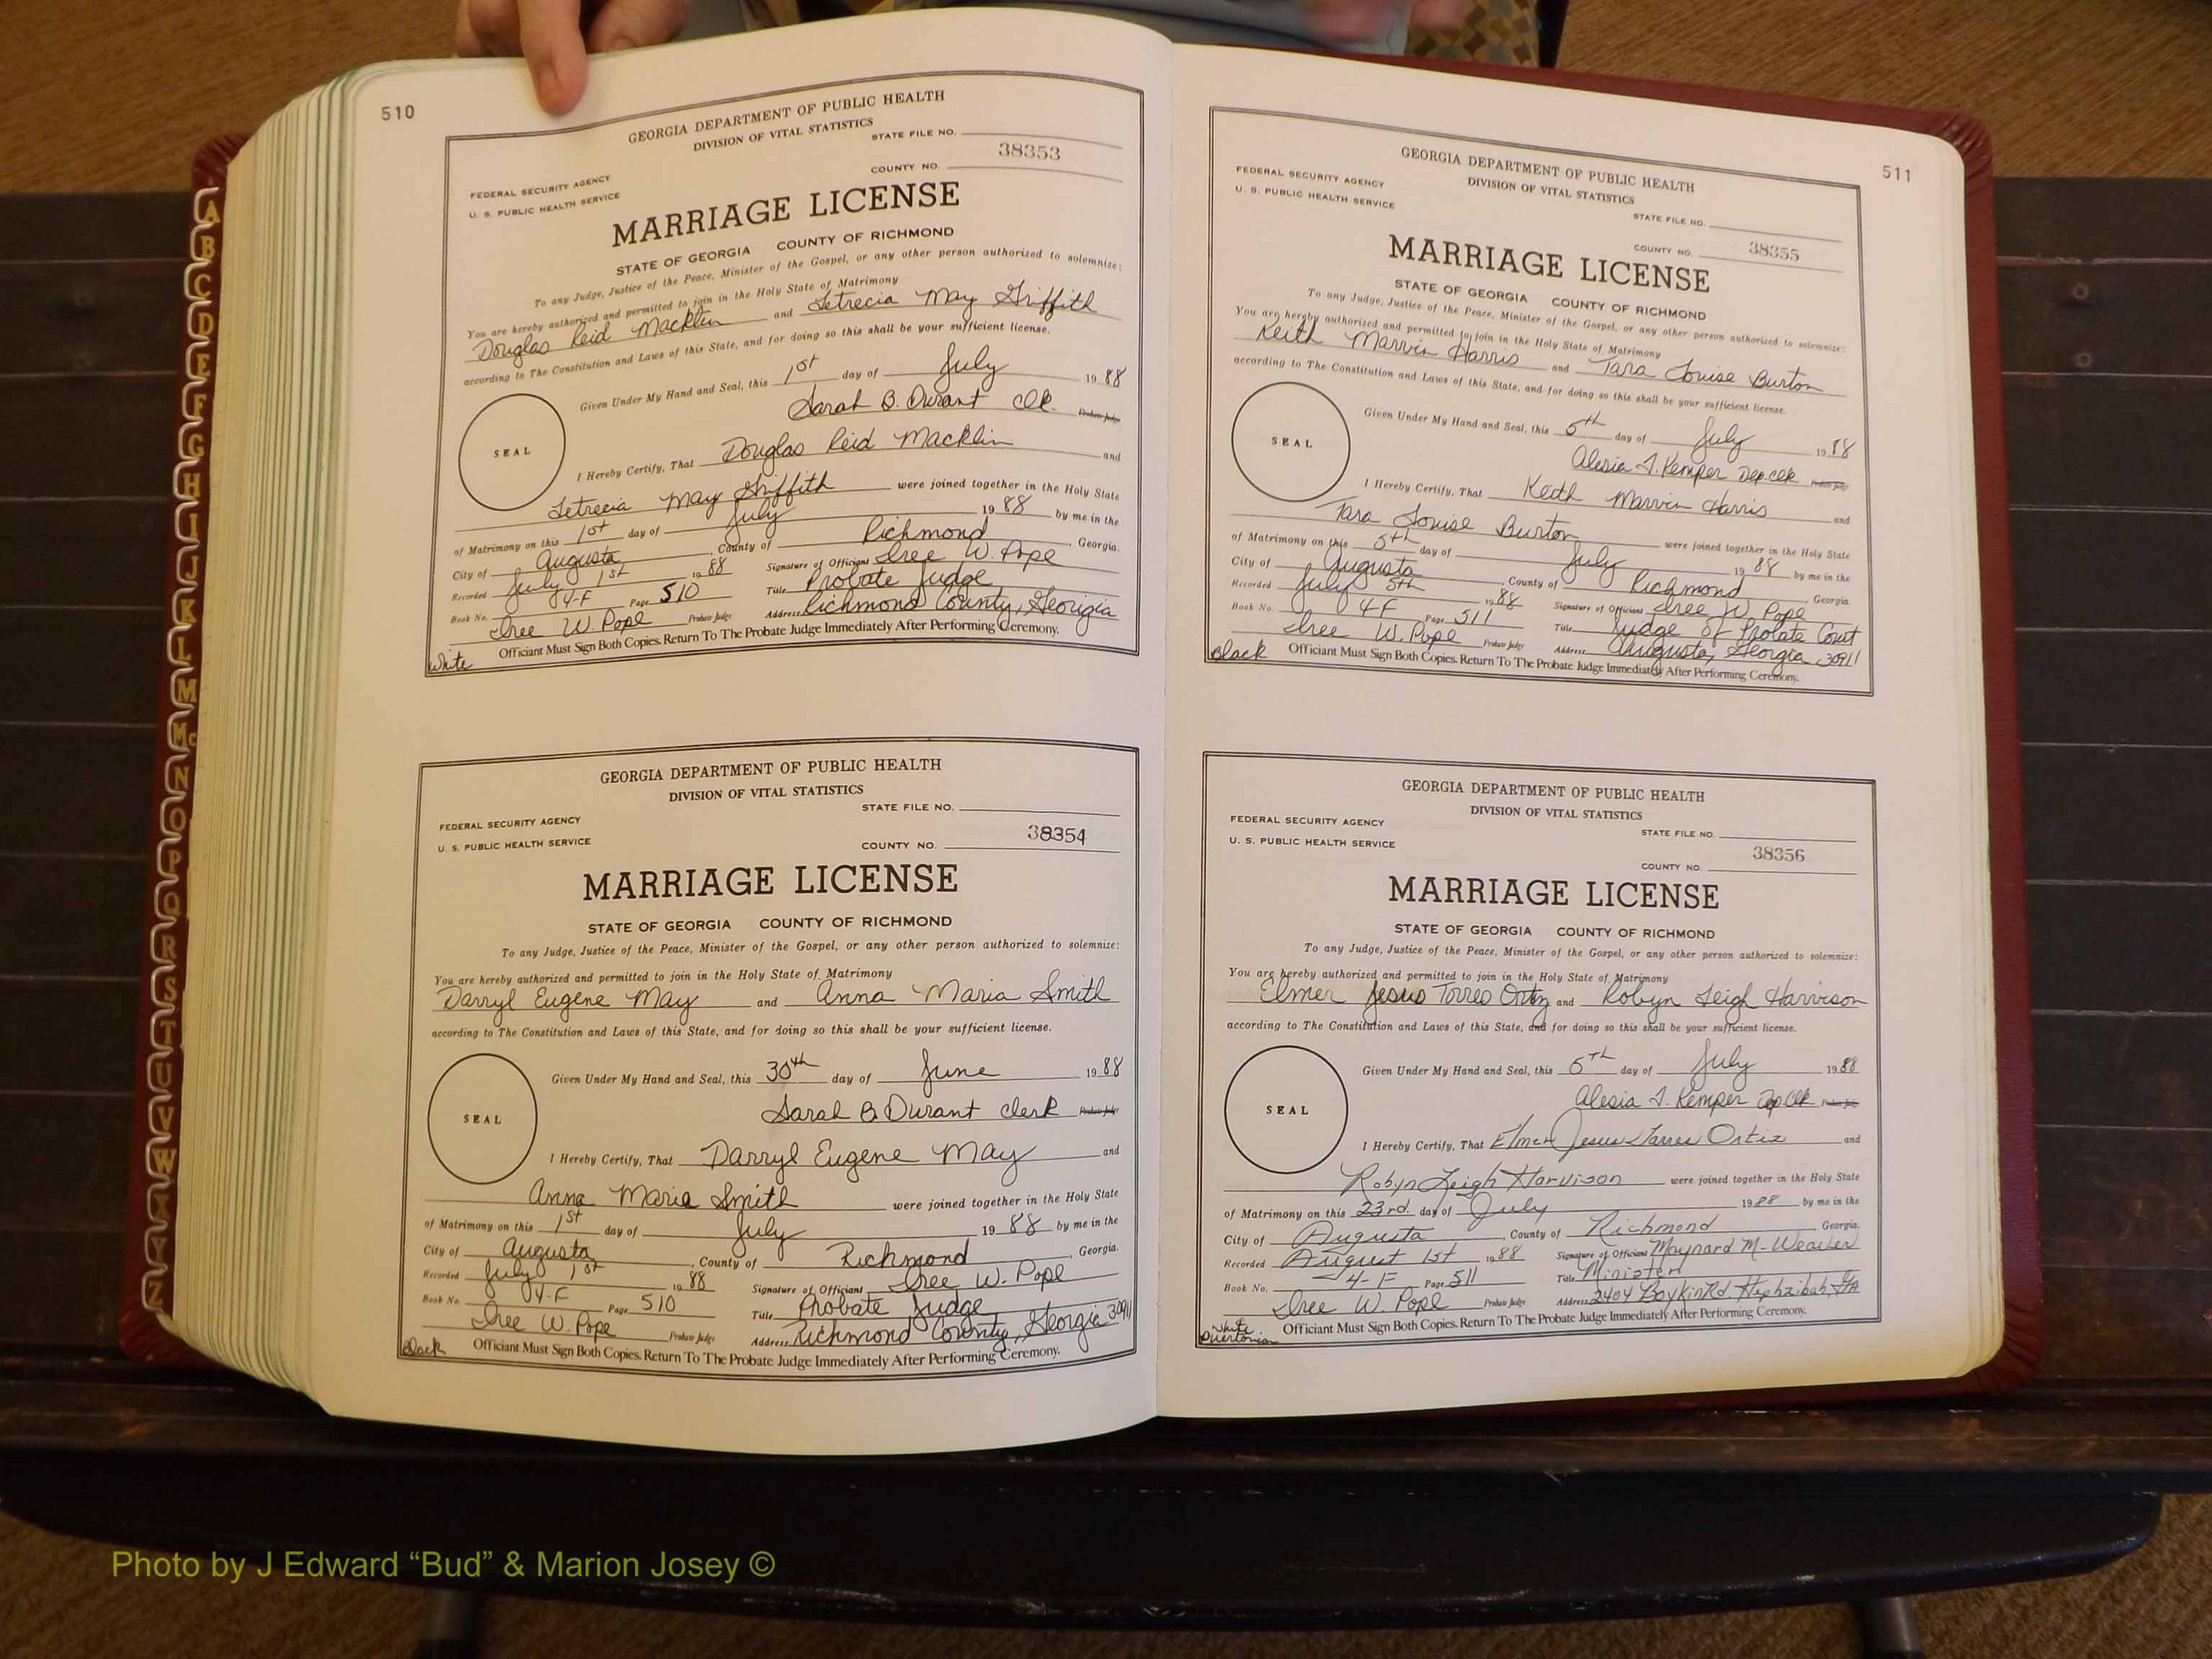 510
GEORGIA DEPARTMENT OF PUBLIC HEALTH
DIVISION OF VITAL STATISTICS
STATE FILE NO.
38353
COUNTY NO.
FEDERAL SECURITY AGENCY
U. S. PUBLIC HEALTH SERVICE
MARRIAGE LICENSE
STATE OF GEORGIA COUNTY OF RICHMOND
To any Judge, Justice of the Peace, Minister of the Gospel, or any other person authorized to solemnize:
You are hereby authorized and permitted to join in the Holy State of Matrimony
Douglas Reid Macklin and Letrecia May Griffith
according to The Constitution and Laws of this State, and for doing so this shall be your sufficient license.
Given Under My Hand and Seal, this 1st day of July 1988
Sarah B. Durant Clk. Probate Judge
SEAL
I Hereby Certify, That Douglas Reid Macklin and
Letrecia May Griffith were joined together in the Holy State
of Matrimony on this 1st day of July 1988 by me in the
City of Augusta, County of Richmond, Georgia.
Recorded July 1st 1988 Signature of Officiant Isree W. Pope
Book No. 04-F Page 510 Title Probate Judge
Isree W. Pope Probate Judge Address Richmond County, Georgia
Officiant Must Sign Both Copies. Return To The Probate Judge Immediately After Performing Ceremony.
White
GEORGIA DEPARTMENT OF PUBLIC HEALTH
DIVISION OF VITAL STATISTICS
STATE FILE NO.
FEDERAL SECURITY AGENCY
38354
U. S. PUBLIC HEALTH SERVICE
COUNTY NO.
MARRIAGE LICENSE
STATE OF GEORGIA COUNTY OF RICHMOND
To any Judge, Justice of the Peace, Minister of the Gospel, or any other person authorized to solemnize:
You are hereby authorized and permitted to join in the Holy State of Matrimony
Darryl Eugene May and Anna Maria Smith
according to The Constitution and Laws of this State, and for doing so this shall be your sufficient license.
Given Under My Hand and Seal, this 30th day of June 1988
Sarah B. Durant Clerk Probate Judge
SEAL
I Hereby Certify, That Darryl Eugene May and
Anna Maria Smith were joined together in the Holy State
of Matrimony on this 1st day of July 1988 by me in the
City of Augusta, County of Richmond, Georgia.
Recorded July 1st 1988 Signature of Officiant Isree W. Pope
Book No. 04-F Page 510 Title Probate Judge
Isree W. Pope Probate Judge Address Richmond County, Georgia 30911
Officiant Must Sign Both Copies. Return To The Probate Judge Immediately After Performing Ceremony.
Black
511
GEORGIA DEPARTMENT OF PUBLIC HEALTH
DIVISION OF VITAL STATISTICS
FEDERAL SECURITY AGENCY
U. S. PUBLIC HEALTH SERVICE
STATE FILE NO.
COUNTY NO. 38355
MARRIAGE LICENSE
STATE OF GEORGIA COUNTY OF RICHMOND
To any Judge, Justice of the Peace, Minister of the Gospel, or any other person authorized to solemnize:
You are hereby authorized and permitted to join in the Holy State of Matrimony
Keith Marvin Harris and Tara Louise Burton
according to The Constitution and Laws of this State, and for doing so this shall be your sufficient license.
Given Under My Hand and Seal, this 5th day of July 1988
Alesia T. Kemper Dep. Clk Probate Judge
SEAL
I Hereby Certify, That Keith Marvin Harris and
Tara Louise Burton were joined together in the Holy State
of Matrimony on this 5th day of July 1988 by me in the
City of Augusta, County of Richmond, Georgia.
Recorded July 5th 1988 Signature of Officiant Isree W. Pope
Book No. 4F Page 511 Title Judge of Probate Court
Isree W. Pope Probate Judge Address Augusta, Georgia 30911
Officiant Must Sign Both Copies. Return To The Probate Judge Immediately After Performing Ceremony.
Black
GEORGIA DEPARTMENT OF PUBLIC HEALTH
DIVISION OF VITAL STATISTICS
FEDERAL SECURITY AGENCY
STATE FILE NO.
U. S. PUBLIC HEALTH SERVICE
38356
COUNTY NO.
MARRIAGE LICENSE
STATE OF GEORGIA COUNTY OF RICHMOND
To any Judge, Justice of the Peace, Minister of the Gospel, or any other person authorized to solemnize:
You are hereby authorized and permitted to join in the Holy State of Matrimony
Elmer Jesus Torres Ortiz and Robyn Leigh Harvison
according to The Constitution and Laws of this State, and for doing so this shall be your sufficient license.
Given Under My Hand and Seal, this 5th day of July 1988
Alesia T. Kemper Dep Clk Probate Judge
SEAL
I Hereby Certify, That Elmer Jesus Torres Ortiz and
Robyn Leigh Harvison were joined together in the Holy State
of Matrimony on this 23rd. day of July 1988 by me in the
City of Augusta, County of Richmond Georgia.
Recorded August 1st 1988 Signature of Officiant Maynard M. Weaver
Book No. 4-F Page 511 Title Minister
Isree W. Pope Probate Judge Address 2404 Boykin Rd. Hephzibah, GA
Officiant Must Sign Both Copies. Return To The Probate Judge Immediately After Performing Ceremony.
White
A
B
C
D
E
F
G
H
I
J
K
L
M
Mc
N
O
P
Q
R
S
T
U
V
W
X
Y
Z
Photo by J Edward “Bud” & Marion Josey ©